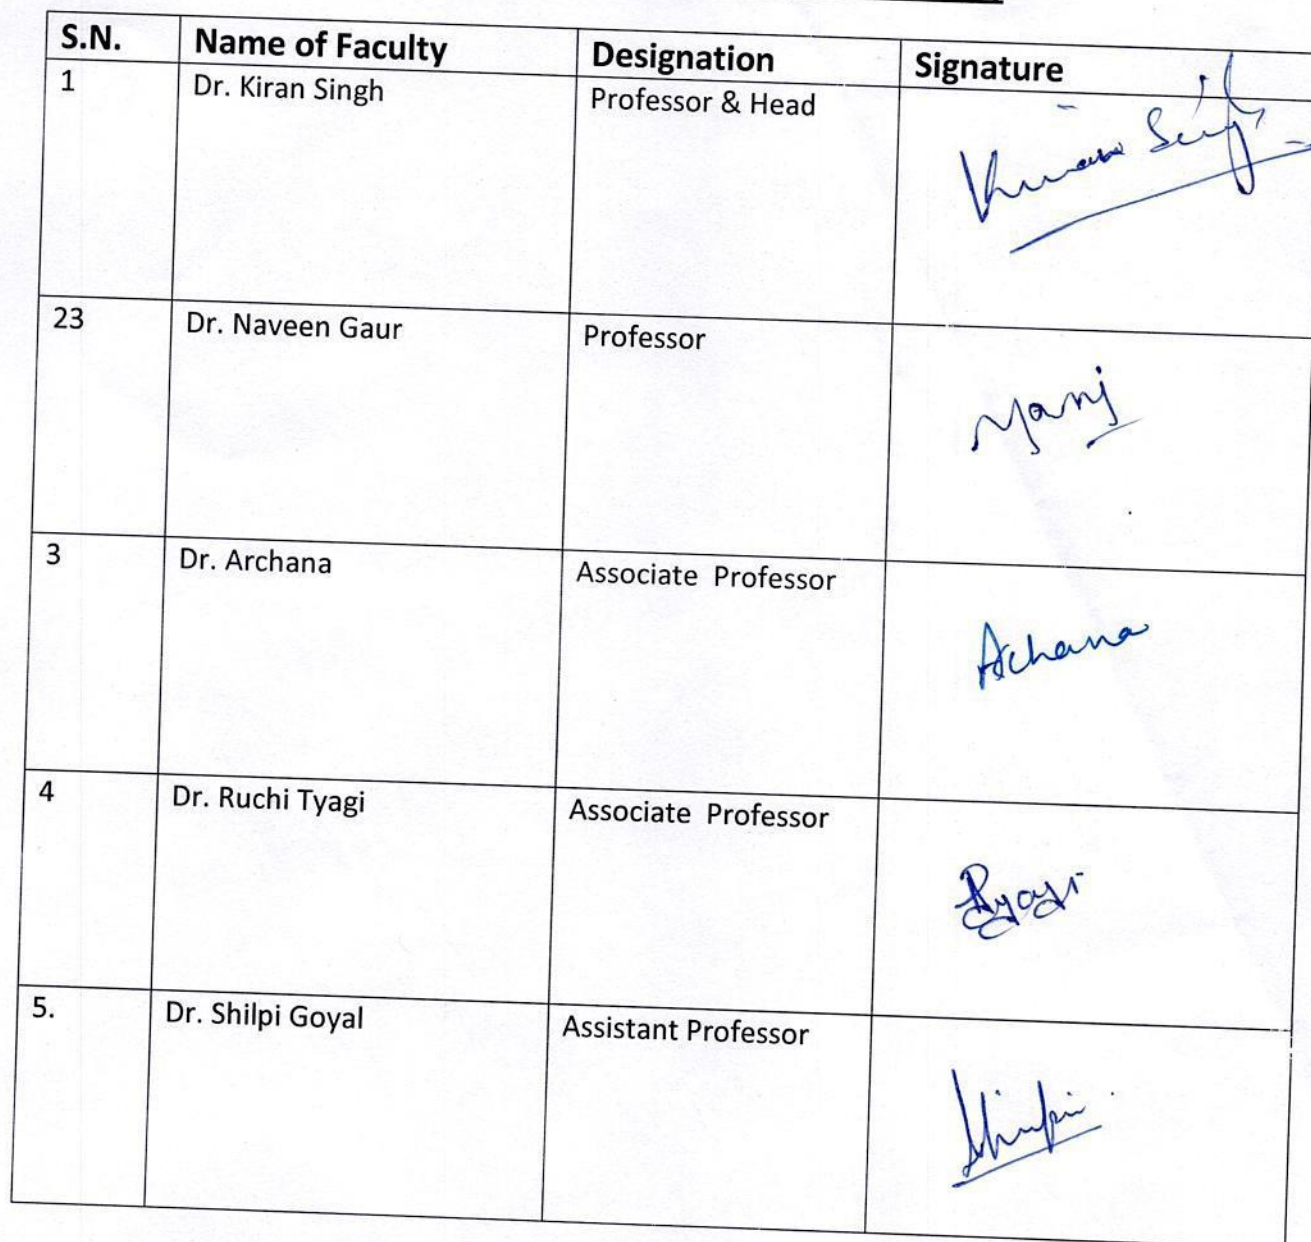 S.N. Name of Faculty Designation Signature
1 Dr. Kiran Singh Professor & Head
Kiran Singh
23 Dr. Naveen Gaur Professor
3 Dr. Archana Associate Professor
Archana
4 Dr. Ruchi Tyagi Associate Professor
5. Dr. Shilpi Goyal Assistant Professor
Shilpi